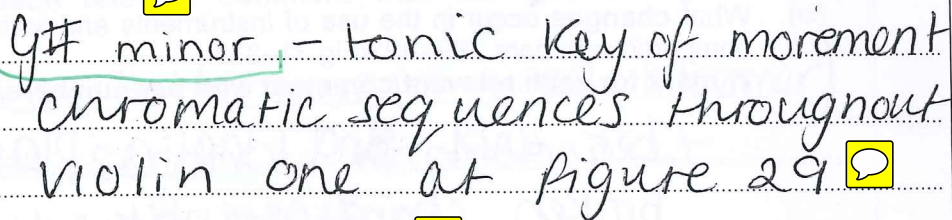 g# minor - tonic key of movement
chromatic sequences throughout
violin one at figure 29